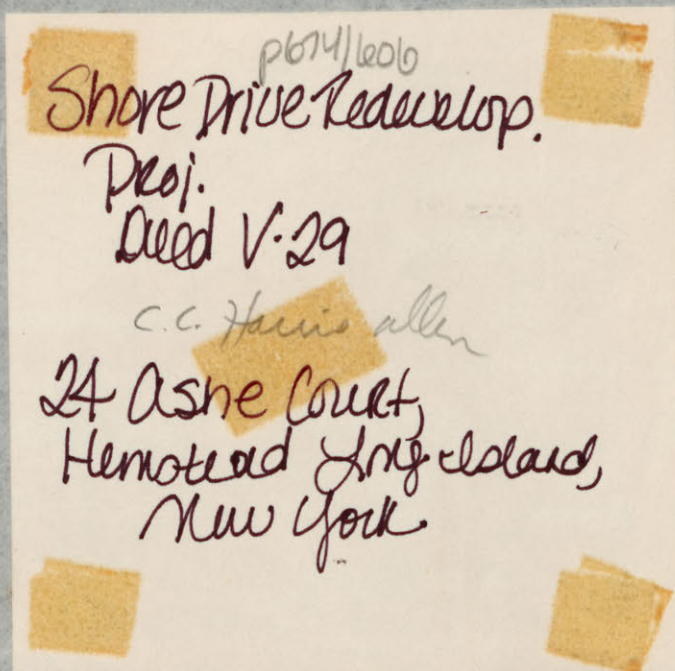 p674/606
Shore Drive Redevelop.
Proj.
Deed V-29
C.C. Harris Allen
24 Ashe Court,
Hemstead Long Island,
New York